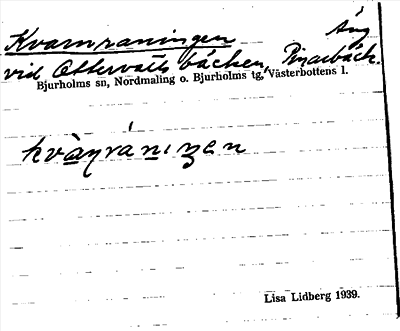 Kvarnraningen Äng
vid Ottervattsbäcken,
Bjurholms sn, Nordmaling o. Bjurholms tg, Västerbottens l.
kvà̱ṉráni̱ŋen
Lisa Lidberg 1939.